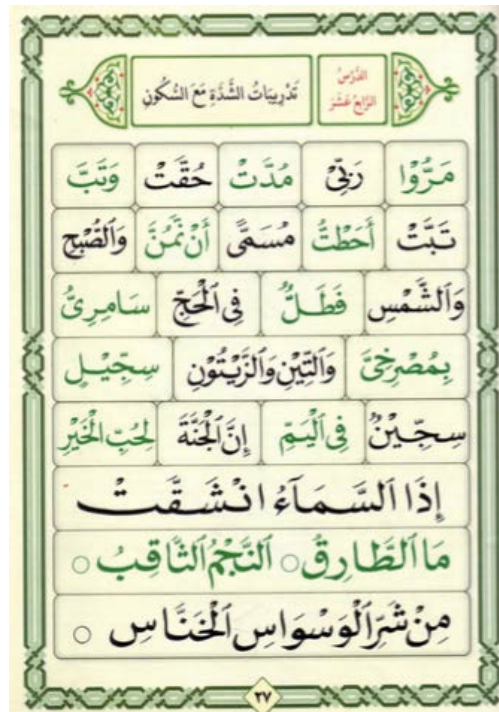 الدَّرْسُ الرَّابِعُ عَشَرَ تَدْرِيبَاتُ الشَّدَّةِ مَعَ السُّكُونِ
مَرُّوا رَبِّيْ مُدَّتْ حُقَّتْ وَتَبَّ
تَبَّتْ أَحَطْتُّ مُسَمًّى أَنْ تَمُنَّ وَالصُّبْحِ
وَالشَّمْسِ فَطَلٌّ فِي الْحَجِّ سَامِرِيُّ
بِمُصْرِخِيَّ وَالتِّيْنِ وَالزَّيْتُوْنِ سِجِّيْلٍ
سِجِّيْنٌ فِي الْيَمِّ إِنَّ الْجَنَّةَ لِحُبِّ الْخَيْرِ
إِذَا السَّمَآءُ انْشَقَّتْ
مَا الطَّارِقُ ○ النَّجْمُ الثَّاقِبُ ○
مِنْ شَرِّ الْوَسْوَاسِ الْخَنَّاسِ ○
٢٧